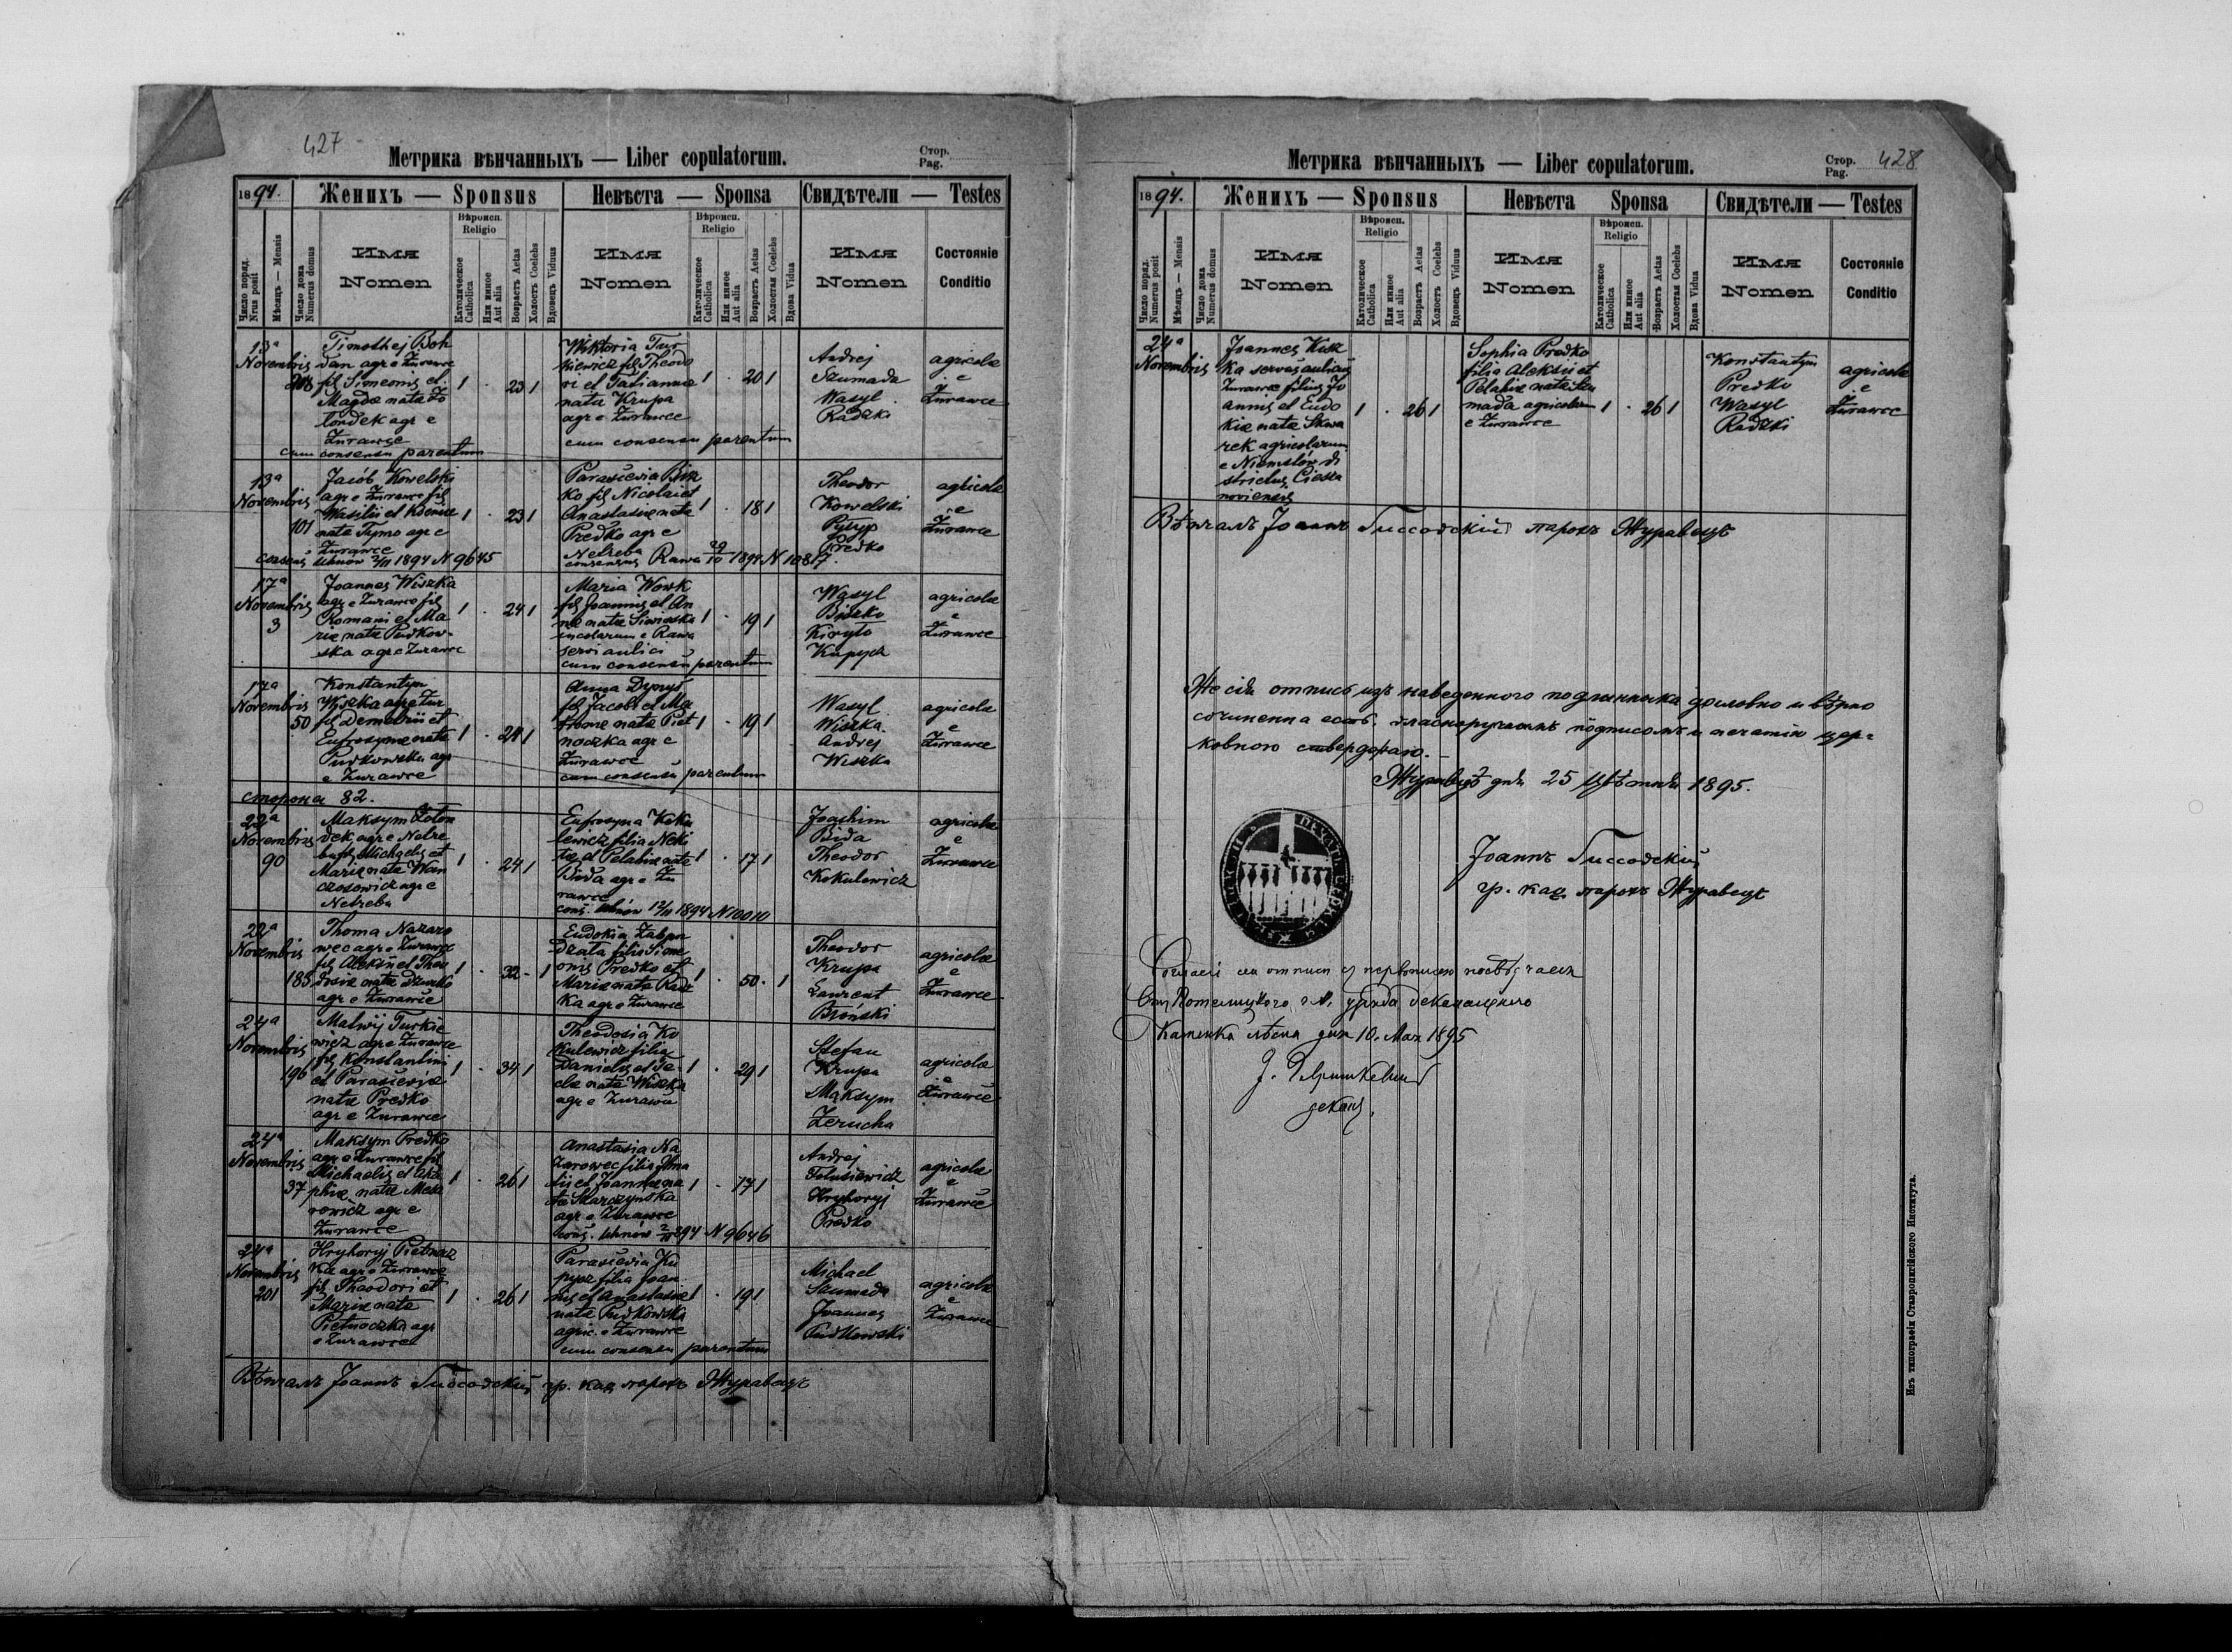 427
Метрика вѣнчанныхъ — Liber copulatorum.
Стор.
Pag.
1894.
Женихъ — Sponsus
Невѣста — Sponsa
Свидѣтели — Testes
Число поряд.
Nrus posit
Мѣсяць — Mensis
Число дома
Numerus domus
Имя
Nomen
Вѣроисп.
Religio
Католическое
Catholica
Или иное
Aut alia
Возрастъ Aetas
Холостъ Coelebs
Вдовець Viduus
Имя
Nomen
Вѣроисп.
Religio
Католическое
Catholica
Или иное
Aut alia
Возрастъ Aetas
Холостая Coelebs
Вдова Vidua
Имя
Nomen
Состояніе
Conditio
13ª
Novembris
Timothej Boh
dan agr e Żurawce
fil Simeonis et
Magdæ nata Zo
londek agr e
Żurawce
cum consensu parentum
1 . 23 1
Wiktoria Tur
kiewicz fil Theodo
ri et Tatiannæ
nata Krupa
agr e Żurawce
cum consensu parentum
1 . 20 1
Andrej
Szumada
Wasyl
Radzki
agricolæ
e
Żurawce
13ª
Novembris
101
Jacób Kowelski
agr e Żurawce fil
Wasilii et Xeniæ
nata Tymo agr e
Żurawce
consens Uhnów 2/11 1894 N 9645
1 . 23 1
Parascevia Bisz
ko fil Nicolai et
Anastasiæ nata
Predko agr e
Netreba
consensus Rawa 29/10 1894 N 10817.
1 . 18 1
Theodor
Kowelski
Pylyp
Predko
agricolæ
e
Żurawce
17ª
Novembris
3
Joannes Wiszka
agr e Żurawce fil
Romani et Ma
riæ nata Pudkow-
ska agr e Żurawce
1 . 24 1
Maria Wowk
fil Joannis et An
næ nata
incolarum e Rawa
servi aulici
cum consensu parentum
1 . 19 1
Wasyl
Biszko
Kiryło
Kupycz
agricolæ
e
Żurawce
17ª
Novembris
50
Konstantyn
Wiszka agr e Żur
fil Demetrii et
Eufrosynæ nata
Pudkowska agr
e Żurawce
1 . 24 1
Anna Dyrys
fil Jacobi et Ma
nata Piet
noczka agr e
Żurawce
cum consensu parentum
1 . 19 1
Wasyl
Wiszka
Andrej
Wiszka
agricolæ
e
Żurawce
сторона 82.
22ª
Novembris
90
Maksym Zolon
dek agr e Netre
ba fil Michaelis et
Mariæ nata Wan
czosowicz agr e
Netreba
1 . 24 1
Eufrosyna Koku
lewicz filia Niki
tæ et Pelahiæ nata
Bida agr e Żu
rawce
cons. Uhnów 12/11 1894 N 10010
1 . 17 1
Joachim
Bida
Theodor
Kokulewicz
agricolæ
e
Żurawce
22ª
Novembris
185
Thoma Nazaro
wec agr e Żurawce
fil Aleksii et Theo
dosiæ nata Dziurko
agr e Żurawce
1 . 32 - 1
Eudokia Zabron
Dzata filia Sime
onis Predko et
Mariæ nata Radz
ka agr e Żurawce
1 . 50 . 1
Theodor
Krupa
Laurent
Broński
agricolæ
e
Żurawce
24ª
Novembris
196
Matwij Turkie
wicz agr e Żurawce
fil Konstantini
et Parasceviæ
natæ Predko
agr e Żurawce
1 . 34 1
Theodosia Ko
kulewicz filia
Danielis et Te
clæ nata Wiszka
agr e Żurawce
1 . 29 1
Stefan
Krupa
Maksym
Zerucha
agricolæ
e
Żurawce
24ª
Novembris
37
Maksym Predko
agr e Żurawce fil
Michaelis et Aga
phiæ natæ Maka
rowicz agr e
Żurawce
1 . 26 1
Anastasia Na
zarowec filia Igna
tii et Joannæ na
ta Skarczynska
agr e Żurawce
cons. Uhnów 2/11 894 N 9646
1 . 17 1
Andrej
Felusiewicz
Hryhoryj
Predko
agricolæ
e
Żurawce
24ª
Novembris
201
Hryhoryj Pietnocz
ka agr e Żurawce
fil Theodori et
Mariæ nata
Pietnoczka agr
e Żurawce
1 . 26 1
Parascevia Ku
pycz filia Joan
nis et Anastasiæ
nata Pudkowska
agric. e Żurawce
cum consensu parentum
1 . 19 1
Michael
Szumada
Joannes
Pudkowski
agricolæ
e
Żurawce
Вѣнчалъ Іоаннъ Гиссовскій гр. кат. парохъ Журавецъ
Метрика вѣнчанныхъ — Liber copulatorum.
Стор.
Pag.
428
1894.
Женихъ — Sponsus
Невѣста Sponsa
Свидѣтели — Testes
Число поряд.
Numerus posit
Мѣсяць — Mensis
Число дома
Numerus domus
Имя
Nomen
Вѣроисп.
Religio
Католическое
Catholica
Или иное
Aut alia
Возрастъ Aetas
Холостъ Coelebs
Вдовець Viduus
Имя
Nomen
Вѣроисп.
Religio
Католическое
Catholica
Или иное
Aut alia
Возрастъ Aetas
Холостая Coelebs
Вдова Vidua
Имя
Nomen
Состояніе
Conditio
24ª
Novembris
Joannes Kisz
ka servus aulicus
Żurawce filius Jo
annis et Eudo
kiæ natæ Skwa
rek agricolarum
e Niemstów di
strictus Ciesza
noviensis
1 . 26 1
Sophia Predko
filia Aleksii et
Pelahiæ nata Szu
mada agricolarum
e Żurawce
1 . 26 1
Konstantyn
Predko
Wasyl
Radzki
agricolæ
e
Żurawce
Вѣнчалъ Іоаннъ Гиссовскій парохъ Журавецъ
Же сія отпись изъ наведенного подлинника дословно и вѣрно
сочиненна есть, власноручнымъ подписомъ и печатію цер=
ковною ствердфаю.
Журавцѣ дня 25 Цвѣтня 1895.
Іоаннъ Гиссовскій
гр. кат. парохъ Журавецъ
сеи отписи съ первописею посвѣдчаеся
Отъ Потелицкого г. к. уряда деканального
Каменка лѣсна дня 10. Мая 1895
деканъ.
Изъ типографіи Ставропигійского Института.